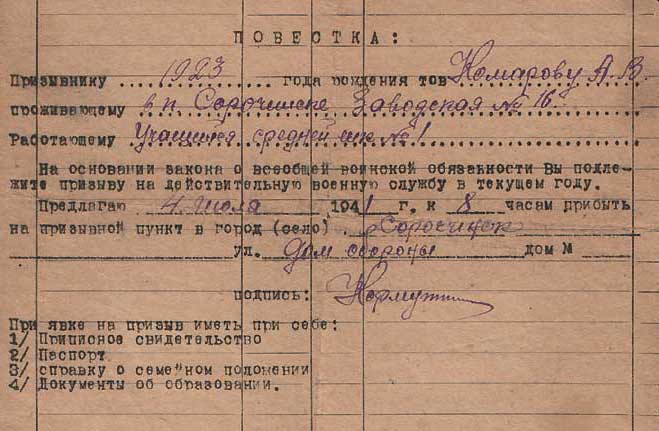 ПОВЕСТКА:
Призывнику 1923 года рождения тов Комарову А.В.
проживающему в п. Сорочинске Заводская № 16
Работающему Учащийся средней шк №1
На основании закона о всеобщей воинской обязанности Вы подле-
жите призыву на действительную военную службу в текущем году.
Предлагаю 4 июля 1941 г. к 8 часам прибыть
на призывной пункт в город (село) Сорочинск
ул. Дом обороны дом №
подпись:
При явке на призыв иметь при себе:
1/ Приписное свидетельство
2/ Паспорт
3/ справку о семейном положении
4/ Документы об образовании.